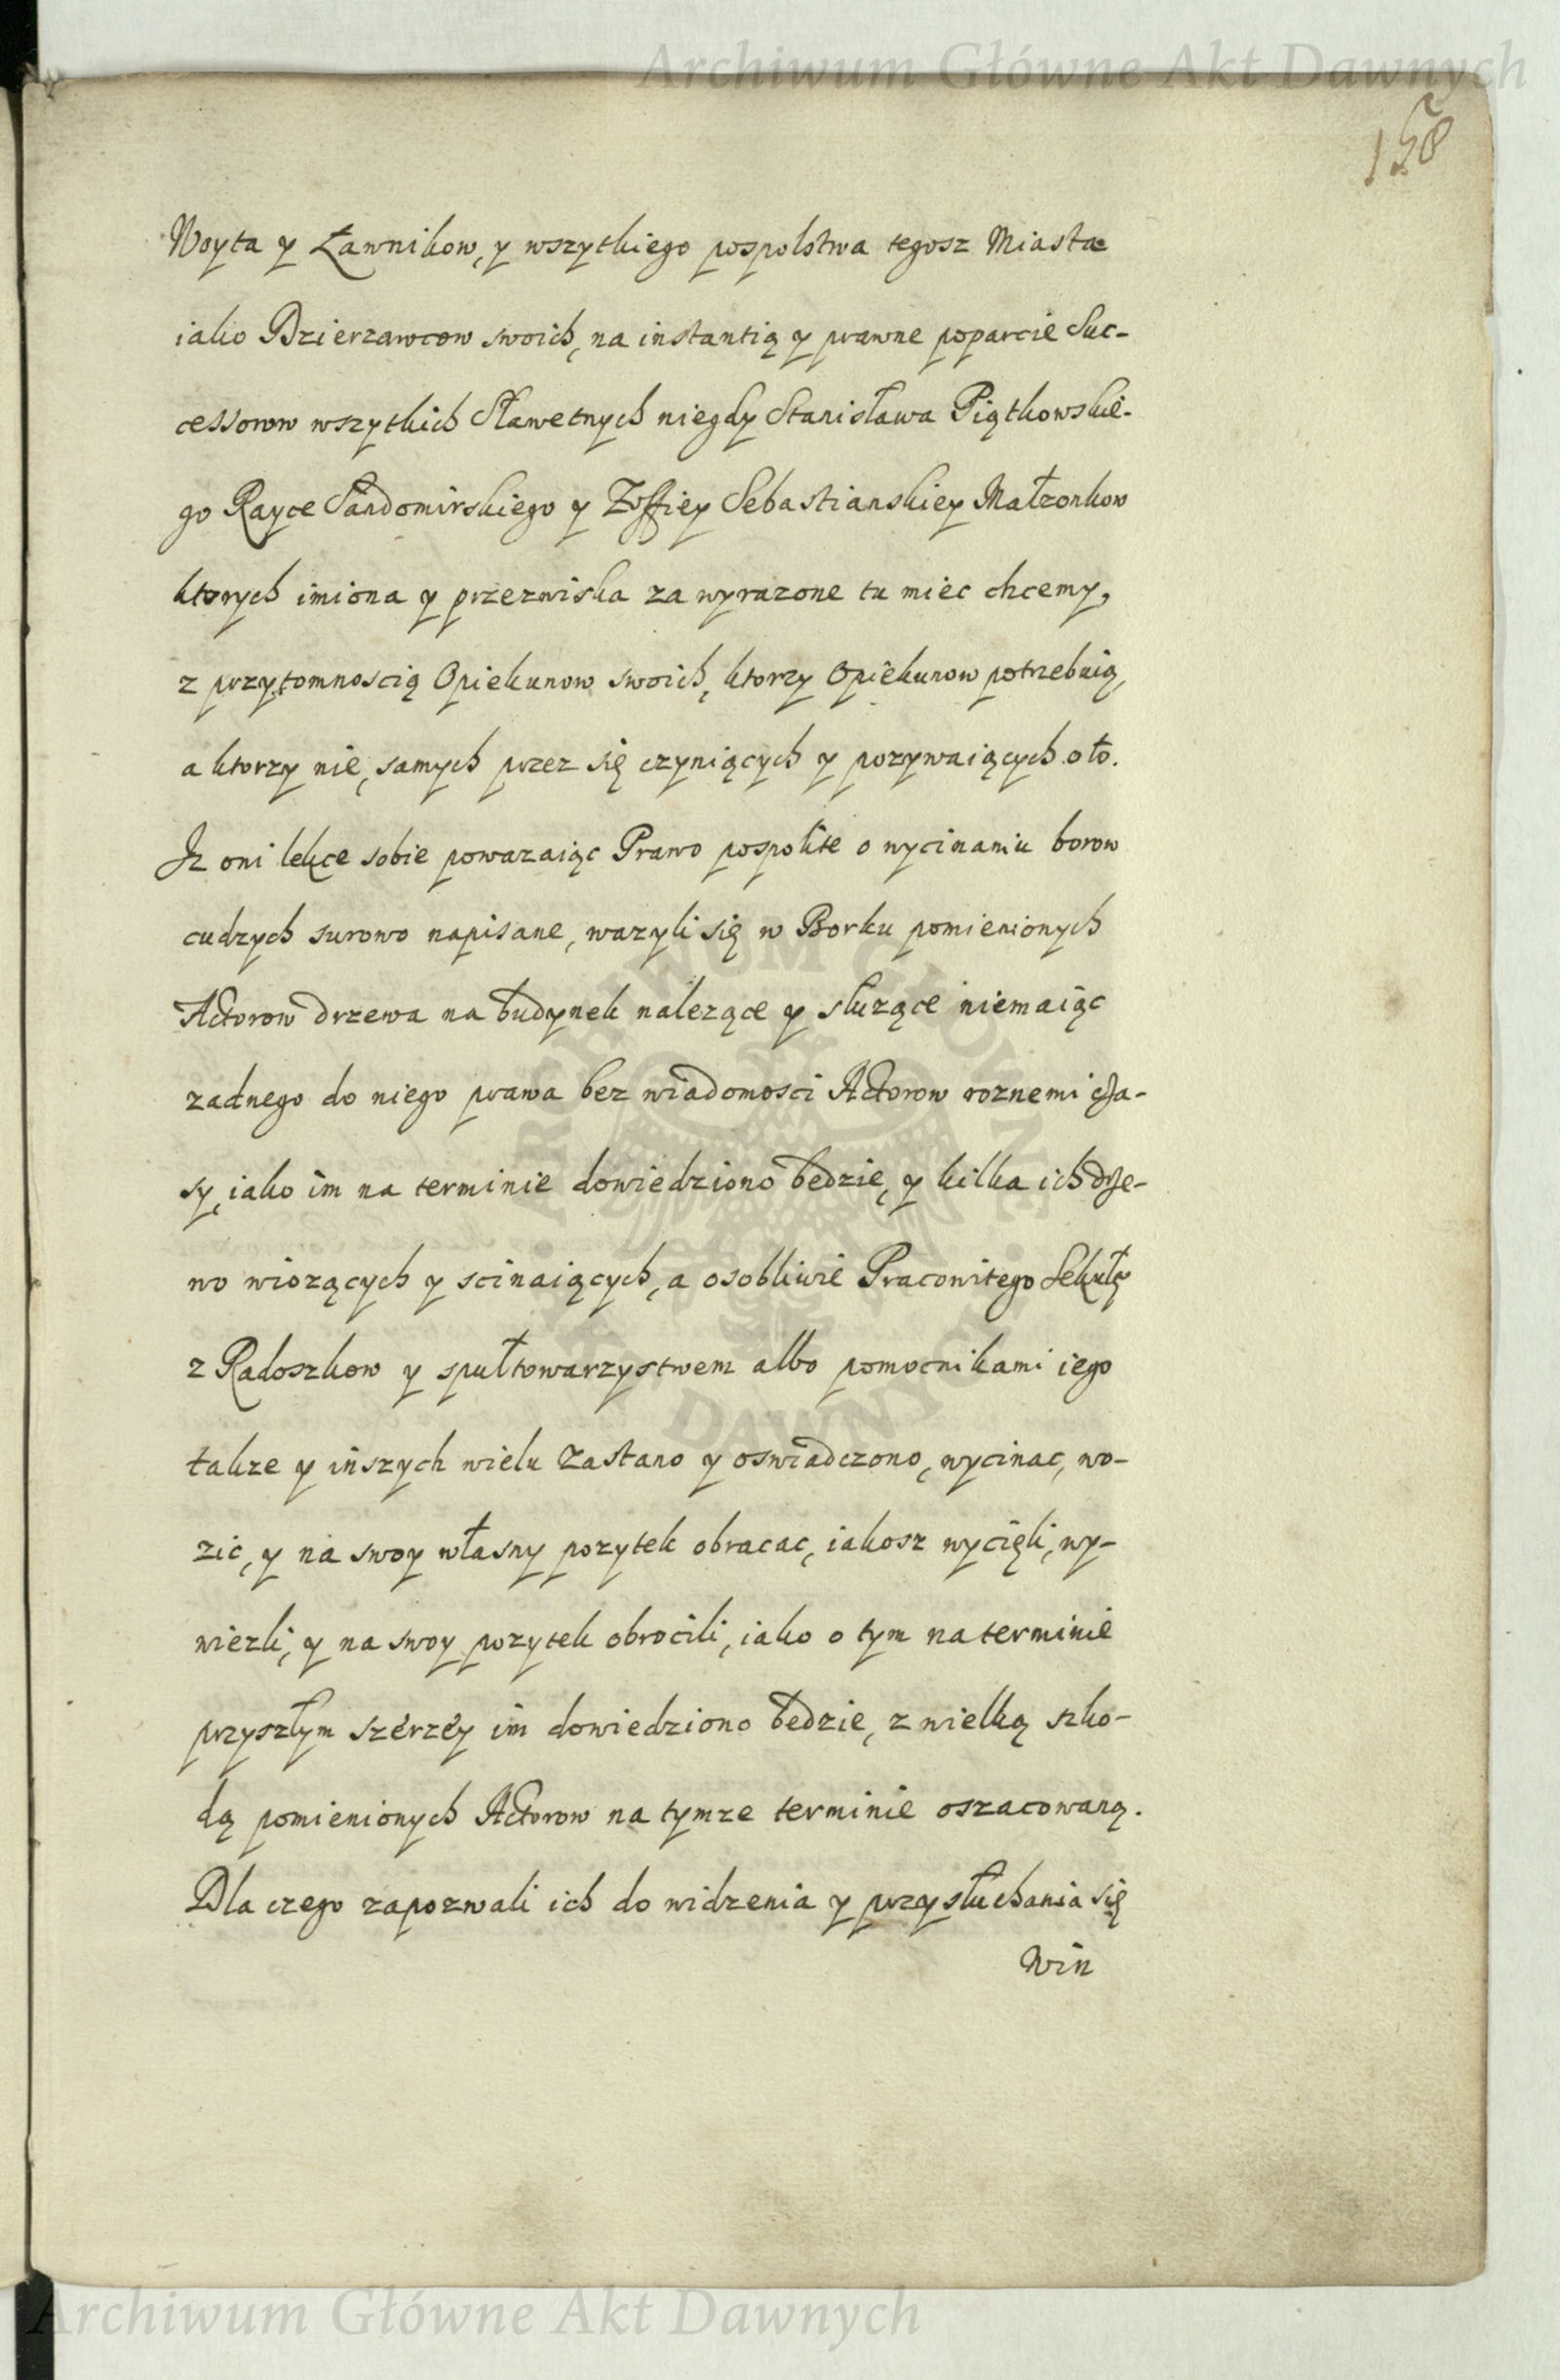 Archiwum Główne Akt Dawnych
158
Woyta y Ławnikow, y wszytkiego pospolstwa tegosz Miasta
iako Dzierzawcow swoich, na instantią y prawne poparcie Suc-
cessorow wszytkich Sławetnych niegdy Stanisława Piątkowskie-
go Rayce Sandomirskiego y Zoffiey Sebastianskiey Małzonkow
ktorych imiona y przezwiska za wyrazone tu miec chcemy,
z przytomnoscią Opiekunow swoich, ktorzy Opiekunow potrzebuią,
a ktorzy nie, samych przez się czyniących y pozywaiących o to.
Jz oni lekce sobie powazaiąc Prawo pospolite o wycinaniu borow
cudzych surowo napisane, wazyli się w Borku pomienionych
Actorow drzewa na budynek nalezące y sluzące niemaiąc
zadnego do niego prawa bez wiadomosci Actorow roznemi cza-
sy, iako im na terminie dowiedziono bedzie, y kilka ich drze-
wo wiozących y scinaiących, a osobliwie Pracowitego Sekułę
z Radoszkow y spułtowarzystwem albo pomocnikami iego
takze y inszych wielu zastano y oswiadczono, wycinac, wo-
zic, y na swoy własny pozytek obracac, iakosz wycięli, wy-
wiezli, y na swoy pozytek obrocili, iako o tym na terminie
przyszłym szerzey im dowiedziono bedzie, z wielką szko-
dą pomienionych Actorow na tymze terminie oszacowaną.
Dla czego zapozwali ich do widzenia y przysłuchania się
Win
ARCHIWUM GŁÓWNE AKT DAWNYCH
Archiwum Główne Akt Dawnych